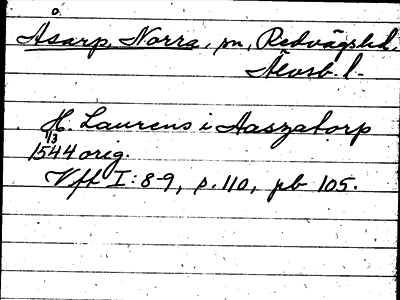 Åsarp, Norra, sn, Redvägs hd,
Älvsb. l.
H. Laurens i Aaszatorp
1/3
1544 orig.
Vff I: 8-9, s. 110, pb 105.